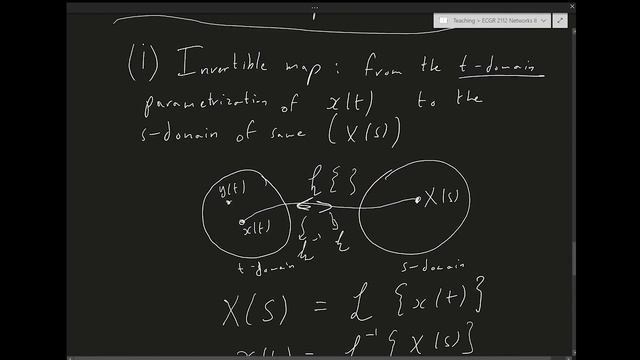 Teaching > ECGR 2112 Networks II
(i) Invertible map: from the t-domain
parametrization of x(t) to the
s-domain of same (X(s))
ℒ { }
y(t)
x(t)
X(s)
ℒ⁻¹ ℒ
t-domain
s-domain
X(s) = ℒ {x(t)}
x(t) = ℒ⁻¹ {X(s)}